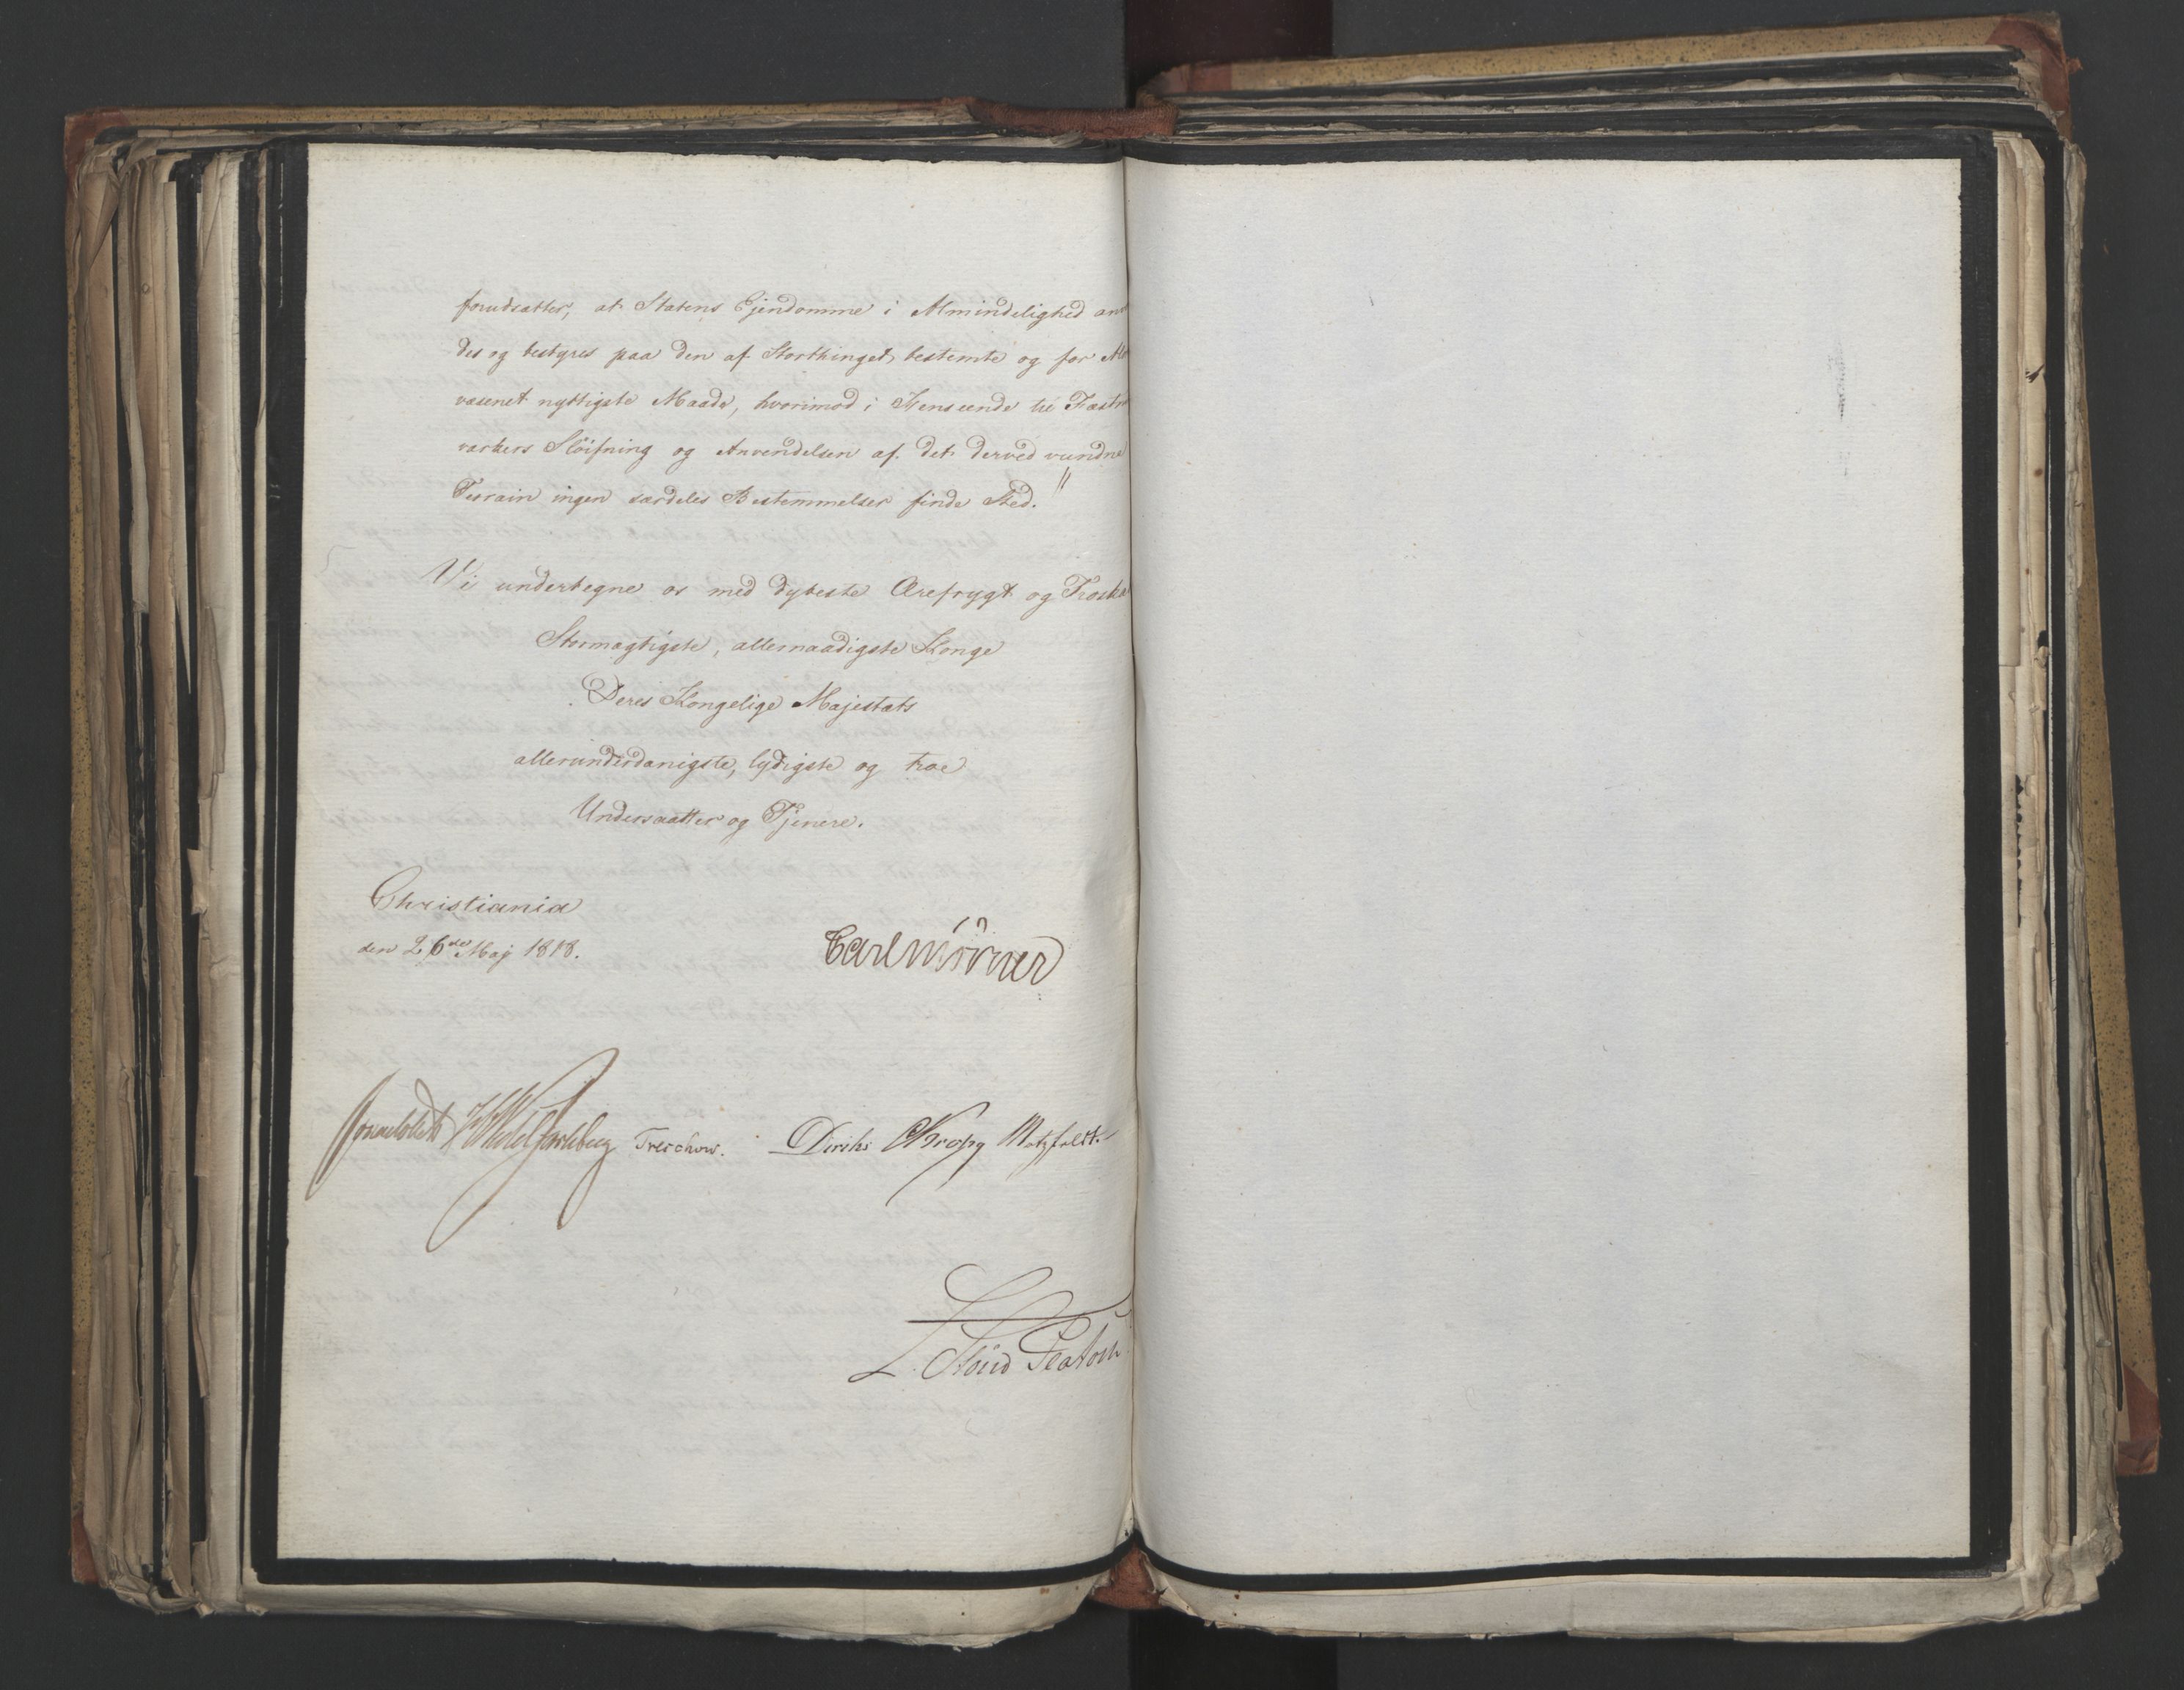 forudsætter, at Statens Ejendomme i Almindelighed an
des og bestyres paa den af Storthinget bestemte og for Al
væsenet nyttigste Maade, hvorimod i Henseende til Fæstn
værkers Sløifning og Anvendelsen af det derved vundne
Terrain ingen særdeles Bestemmelser finde Sted."
Vi undertegne os med dybeste Ærefrygt og Troska
Stormægtigste, allernaadigste Konge
Deres Kongelige Majestæts
allerunderdanigste, lydigste og troe
Undersaatter og Tjenere.
Christiania
den 26de Maj 1818.
Carl Mörner
Sommerhielm HWedel Jarlsberg Treschow. Diriks CKrogg Motzfeldt.
L. Stoud Platou